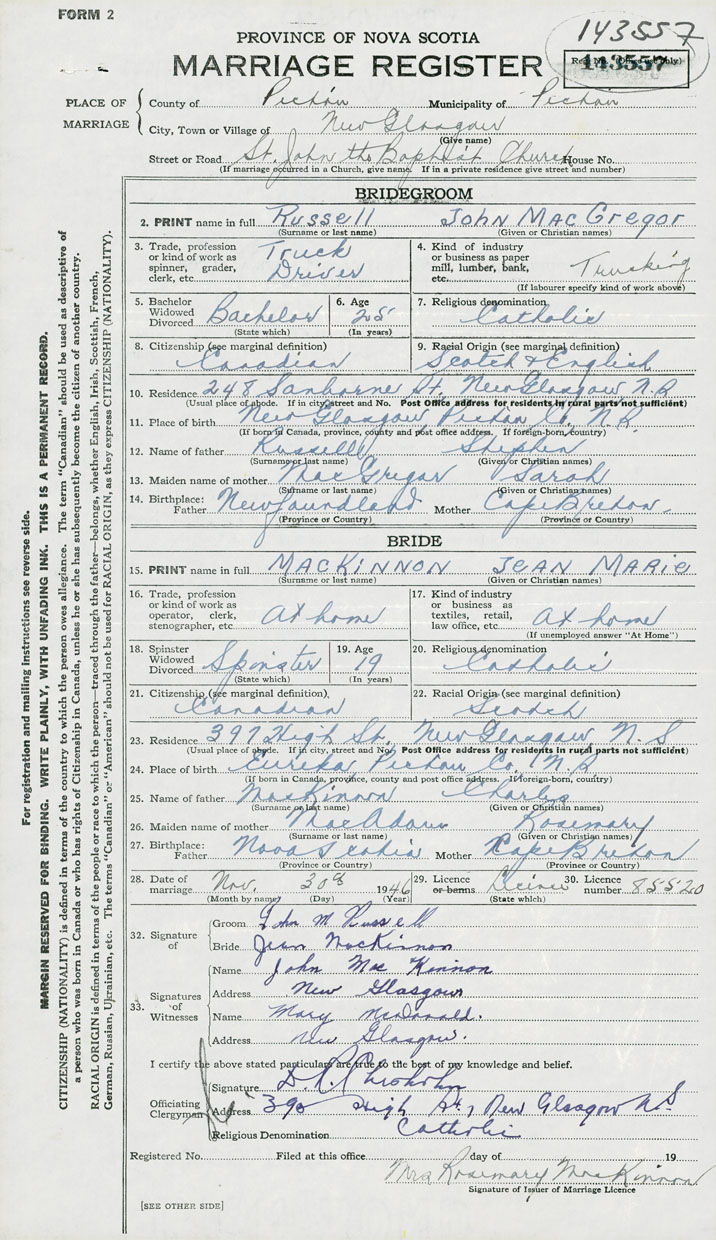 FORM 2
143557
PROVINCE OF NOVA SCOTIA
MARRIAGE REGISTER
143557
PLACE OF MARRIAGE
County of Pictou Municipality of Pictou
City, Town or Village of New Glasgow
(Give name)
Street or Road St. John the Baptist Church House No.
(If marriage occurred in a Church, give name. If in a private residence give street and number)
BRIDEGROOM
2. PRINT name in full Russell John MacGregor
(Surname or last name) (Given or Christian names)
3. Trade, profession or kind of work as spinner, grader, clerk, etc. Truck Driver
4. Kind of industry or business as paper mill, lumber, bank, etc. Trucking
(If labourer specify kind of work above)
5. Bachelor Widowed Divorced Bachelor
(State which)
6. Age 25
(In years)
7. Religious denomination
Catholic
8. Citizenship (see marginal definition)
Canadian
9. Racial Origin (see marginal definition)
Scotch & English
10. Residence 248 Sanborne St. New Glasgow N.S
(Usual place of abode. If in city, street and No. Post Office address for residents in rural parts not sufficient)
11. Place of birth New Glasgow Pictou Co. N.S.
(If born in Canada, province, county and post office address. If foreign-born, country)
12. Name of father Russell Stephen
(Surname or last name) (Given or Christian names)
13. Maiden name of mother MacGregor Sarah
(Surname or last name) (Given or Christian names)
14. Birthplace: Father Newfoundland Mother Cape Breton
(Province or Country) (Province or Country)
BRIDE
15. PRINT name in full MACKINNON JEAN MARIE
(Surname or last name) (Given or Christian names)
16. Trade, profession or kind of work as operator, clerk, stenographer, etc. At home
17. Kind of industry or business as textiles, retail, law office, etc. At home
(If unemployed answer "At Home")
18. Spinster Widowed Divorced Spinster
(State which)
19. Age 19
(In years)
20. Religious denomination
Catholic
21. Citizenship (see marginal definition)
Canadian
22. Racial Origin (see marginal definition)
Scotch
23. Residence 397 High St. New Glasgow, N.S
(Usual place of abode. If in city, street and No. Post Office address for residents in rural parts not sufficient)
24. Place of birth Eureka Pictou Co. N.S
(If born in Canada, province, county and post office address. If foreign-born, country)
25. Name of father MacKinnon Charles
(Surname or last name) (Given or Christian names)
26. Maiden name of mother MacAdam Rosemary
(Surname or last name) (Given or Christian names)
27. Birthplace: Father Nova Scotia Mother Cape Breton
(Province or Country) (Province or Country)
28. Date of marriage Nov. 30th 1946
(Month by name) (Day) (Year)
29. Licence or banns Licence
(State which)
30. Licence number 85520
32. Signature of
Groom John M Russell
Bride Jean MacKinnon
33. Signatures of Witnesses
Name John Mac Kinnon
Address New Glasgow
Name Mary McDonald.
Address New Glasgow.
I certify the above stated particulars are true to the best of my knowledge and belief.
Officiating Clergyman
Signature
Address 390 High St, New Glasgow N.S
Religious Denomination Catholic
Registered No. Filed at this office day of 19
Mrs Rosemary MacKinnon
Signature of Issuer of Marriage Licence
[SEE OTHER SIDE]
For registration and mailing instructions see reverse side.
MARGIN RESERVED FOR BINDING. WRITE PLAINLY, WITH UNFADING INK. THIS IS A PERMANENT RECORD.
CITIZENSHIP (NATIONALITY) is defined in terms of the country to which the person owes allegiance. The term "Canadian" should be used as descriptive of
a person who was born in Canada or who has rights of Citizenship in Canada, unless he or she has subsequently become the citizen of another country.
RACIAL ORIGIN is defined in terms of the people or race to which the person—traced through the father—belongs, whether English, Irish, Scottish, French,
German, Russian, Ukrainian, etc. The terms "Canadian" or "American" should not be used for RACIAL ORIGIN, as they express CITIZENSHIP (NATIONALITY).